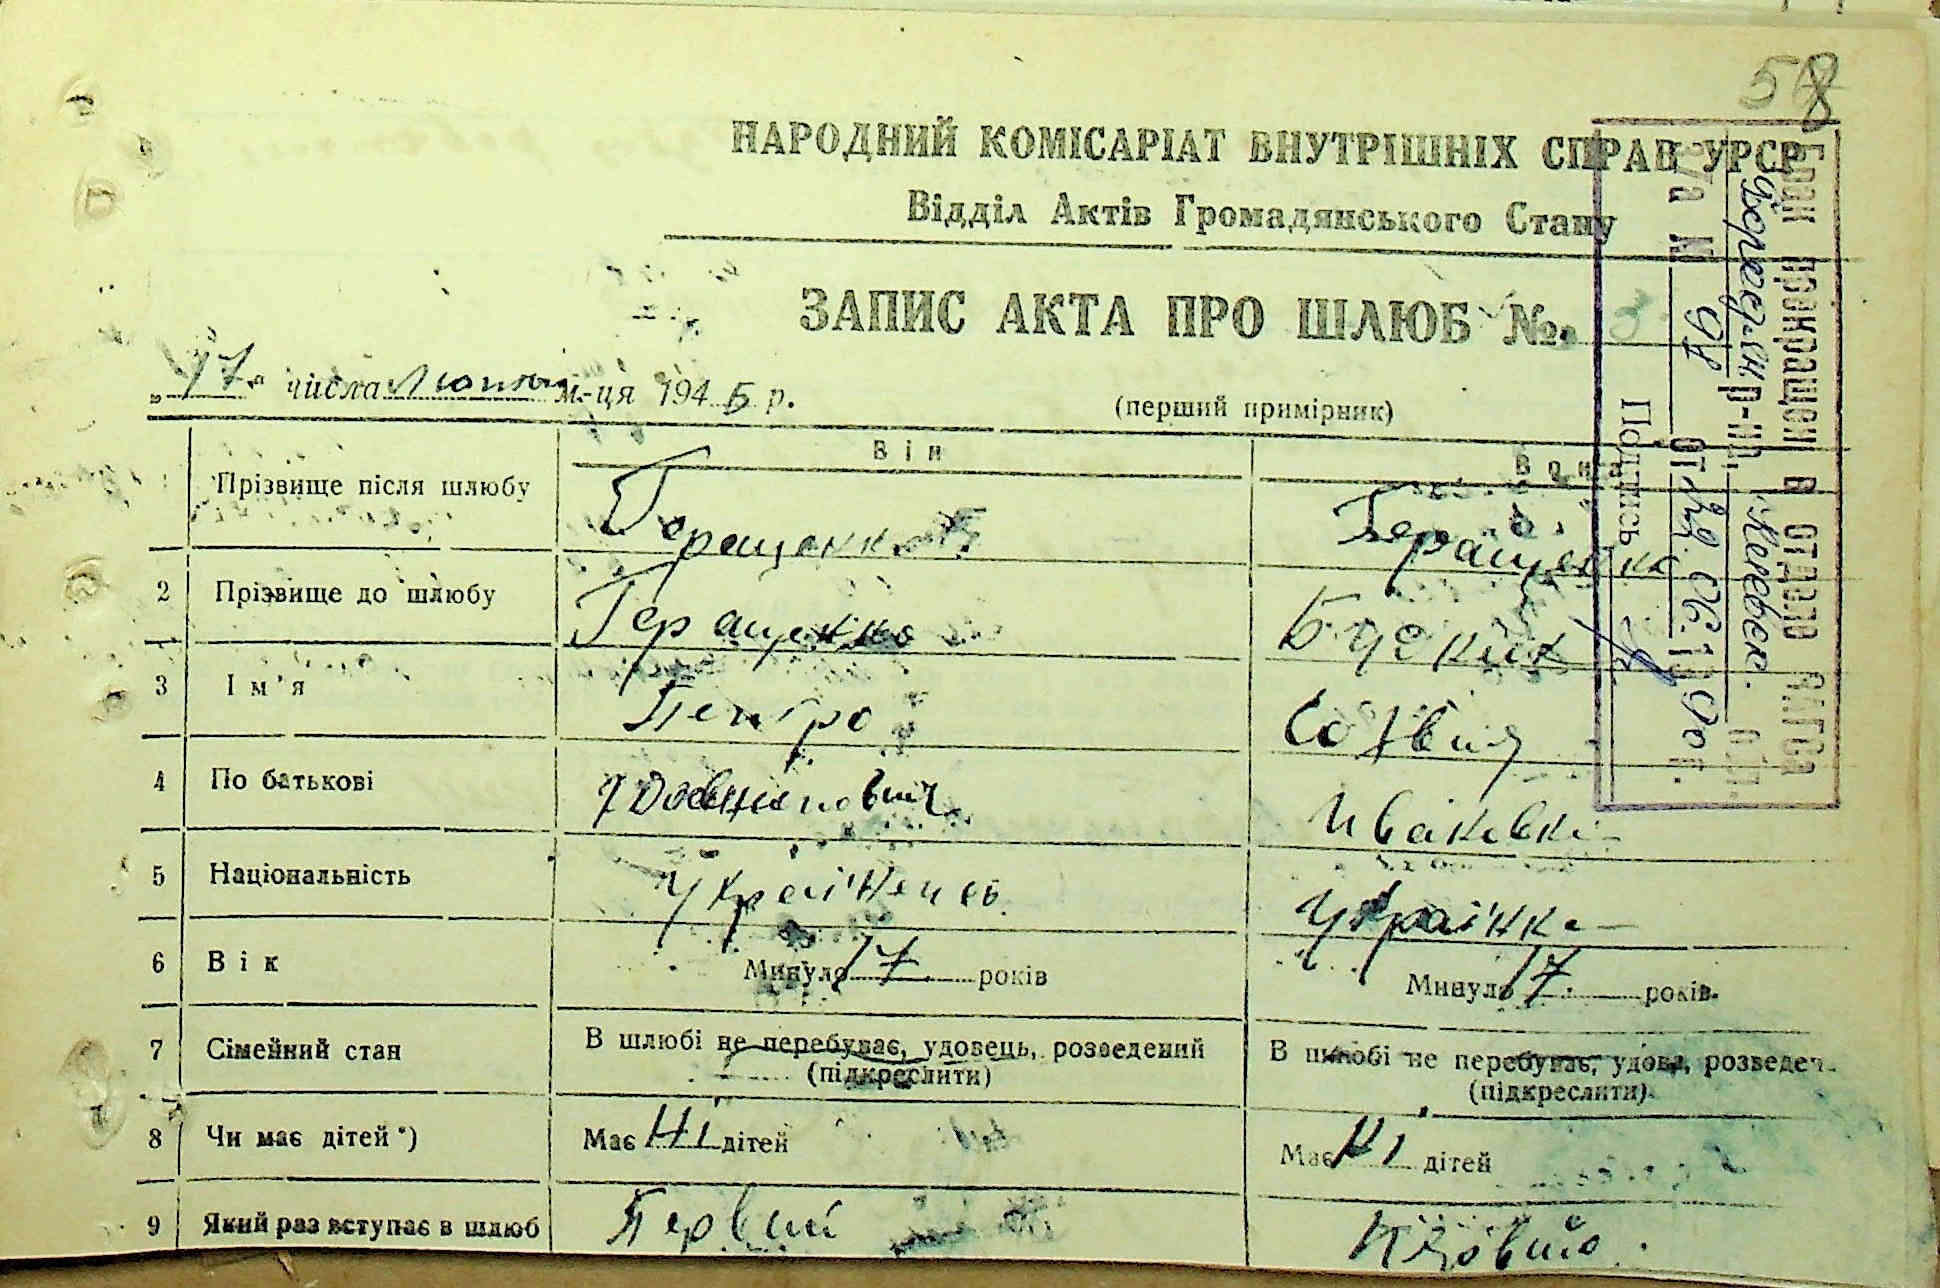 58
НАРОДНИЙ КОМІСАРІАТ ВНУТРІШНІХ СПРАВ УРСР
Відділ Актів Громадянського Стану
ЗАПИС АКТА ПРО ШЛЮБ № 3
„17“ числа Лютого м-ця 1945 р.
(перший примірник)
Він Вона
Прізвище після шлюбу Геращенко Геращенко
2 Прізвище до шлюбу Геращенко
3 Ім'я Петро Софія
4 По батькові Івановна
5 Національність Українець Українка
6 Вік Минуло 17 років Минуло 17 років
7 Сімейний стан В шлюбі не перебуває, удовець, розведений (підкреслити) В шлюбі не перебуває, удова, розведен. (підкреслити)
8 Чи має дітей *) Має Ні дітей Має Ні дітей
9 Який раз вступає в шлюб Первий
Брак прекращен в отделе ЗАГСа
р-на, Киевск. обл.
з/а № 98 от
Подпись